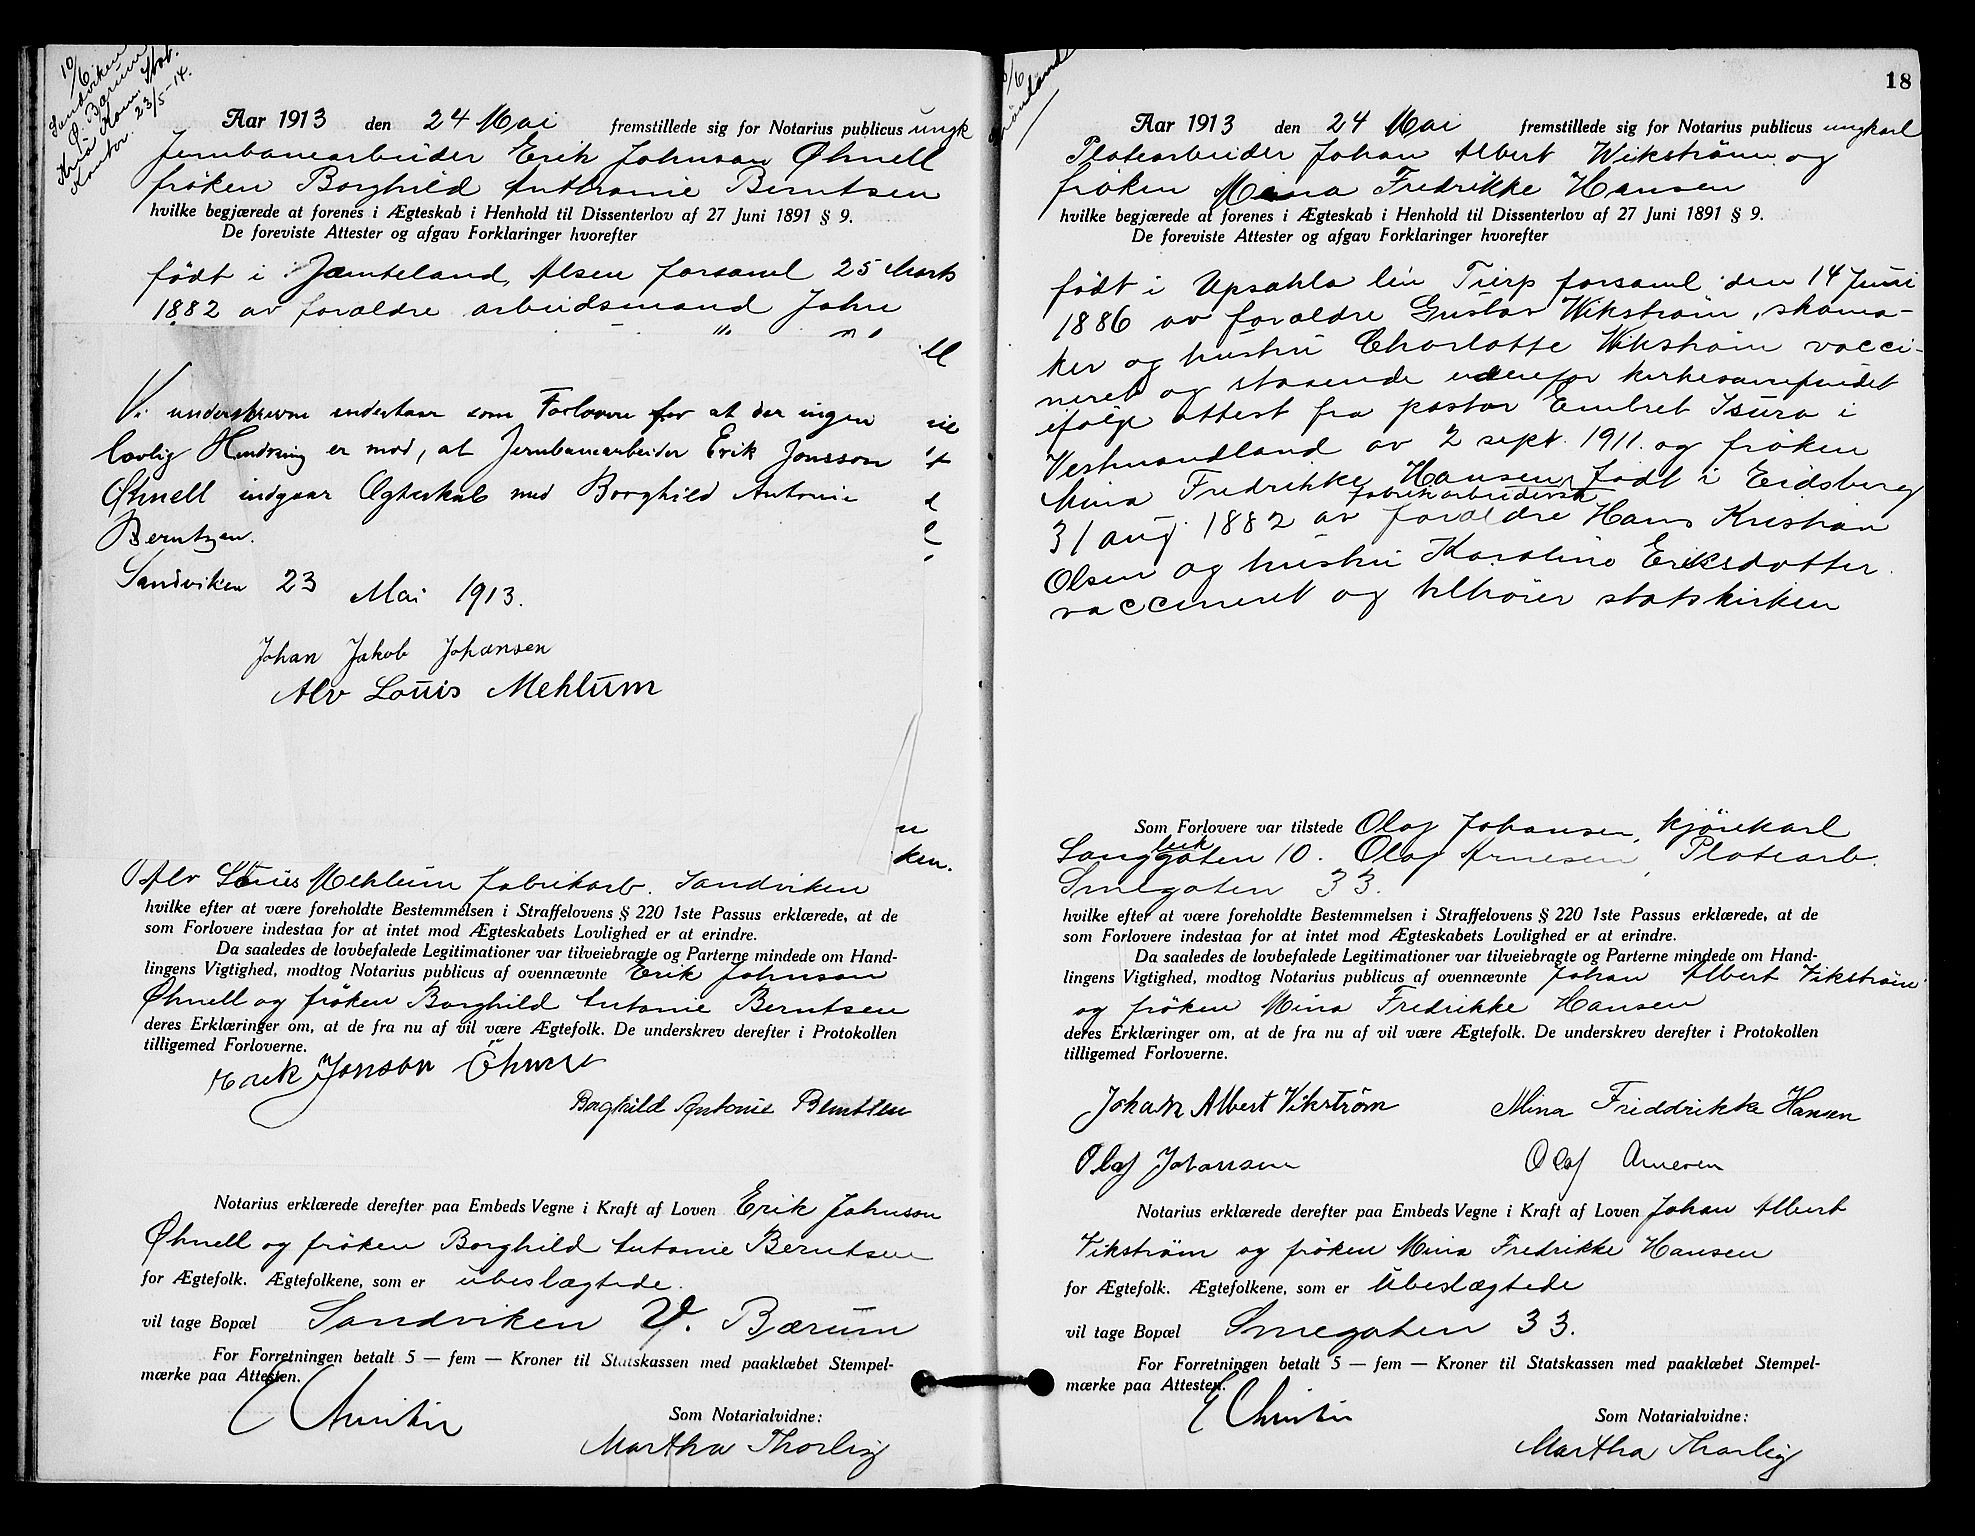 10/6
Sandviken
Bærum
Kria Kom. Skat.
Kontor. 23/5-14.
Aar 1913 den 24 Mai fremstillede sig for Notarius publicus ungk
Jernbanearbeider Erik Johnson Øhnell
frøken Borghild Anthonie Berntsen
hvilke begjærede at forenes i Ægteskab i Henhold til Dissenterlov af 27 Juni 1891 § 9.
De foreviste Attester og afgav Forklaringer hvorefter
født i Jämteland, Alsen forsaml 25 Marts
1882 av forældre arbeidsmand John
Vi underskrevne indestaar som Forlovere for at der ingen
lovlig Hindring er mod, at Jernbanearbeider Erik Jonsson
Øhnell indgaar Ægteskab med Borghild Antonie
Berntzen.
Sandviken 23 Mai 1913.
Johan Jakob Johansen
Alv Louis Mehlum
ken.
Alv Louis Mehlum fabrikarb. Sandviken
hvilke efter at være foreholdte Bestemmelsen i Straffelovens § 220 1ste Passus erklærede, at de
som Forlovere indestaa for at intet mod Ægteskabets Lovlighed er at erindre.
Da saaledes de lovbefalede Legitimationer var tilveiebragte og Parterne mindede om Hand-
lingens Vigtighed, modtog Notarius publicus af ovennævnte Erik Johnson
Øhnell og frøken Borghild Antonie Berntsen
deres Erklæringer om, at de fra nu af vil være Ægtefolk. De underskrev derefter i Protokollen
tilligemed Forloverne.
Erik Jonson Öhnell
Borghild Antonie Berntsen
Notarius erklærede derefter paa Embeds Vegne i Kraft af Loven Erik Johnson
Øhnell og frøken Borghild Antonie Berntsen
for Ægtefolk. Ægtefolkene, som er ubeslægtede.
vil tage Bopæl Sandviken V. Bærum
For Forretningen betalt 5 — fem — Kroner til Statskassen med paaklæbet Stempel-
mærke paa Attesten.
Som Notarialvidne:
Martha Thorlig
18
Aar 1913 den 24 Mai fremstillede sig for Notarius publicus ungkarl
Platearbeider Johan Albert Wikstrøm og
frøken Mina Fredrikke Hansen
hvilke begjærede at forenes i Ægteskab i Henhold til Dissenterlov af 27 Juni 1891 § 9.
De foreviste Attester og afgav Forklaringer hvorefter
født i Upsahla län Tierp forsaml den 14 Juni
1886 av forældre Gustav Wikstrøm, skoma-
ker og hustru Charlotte Wikstrøm vacci-
neret og staaende udenfor kirkesamfundet
ifølge attest fra pastor Embret Isura i
Vestmandland av 2 sept. 1911. og frøken
Mina Fredrikke Hansen, født i Eidsberg
fabrikarbeiderske
31 aug 1882 av forældre Hans Kristian
Olsen og hustru Karoline Eriksdotter.
vaccineret og tilhører statskirken
Som Forlovere var tilstede Olaf Johansen, kjørekarl
Langgaten 10. Olaf Arnesen, Platearb.
Smegaten 33.
hvilke efter at være foreholdte Bestemmelsen i Straffelovens § 220 1ste Passus erklærede, at de
som Forlovere indestaa for at intet mod Ægteskabets Lovlighed er at erindre.
Da saaledes de lovbefalede Legitimationer var tilveiebragte og Parterne mindede om Hand-
lingens Vigtighed, modtog Notarius publicus af ovennævnte Johan Albert Vikstrøm
og frøken Mina Fredrikke Hansen
deres Erklæringer om, at de fra nu af vil være Ægtefolk. De underskrev derefter i Protokollen
tilligemed Forloverne.
Johan Albert Vikström Mina Friddrikke Hansen
Olaf Johansen Olaf Arnesen
Notarius erklærede derefter paa Embeds Vegne i Kraft af Loven Johan Albert
Vikstrøm og frøken Mina Fredrikke Hansen
for Ægtefolk. Ægtefolkene, som er Ubeslægtede
vil tage Bopæl Smegaten 33.
For Forretningen betalt 5 — fem — Kroner til Statskassen med paaklæbet Stempel-
mærke paa Attesten.
Som Notarialvidne:
Martha Thorlig